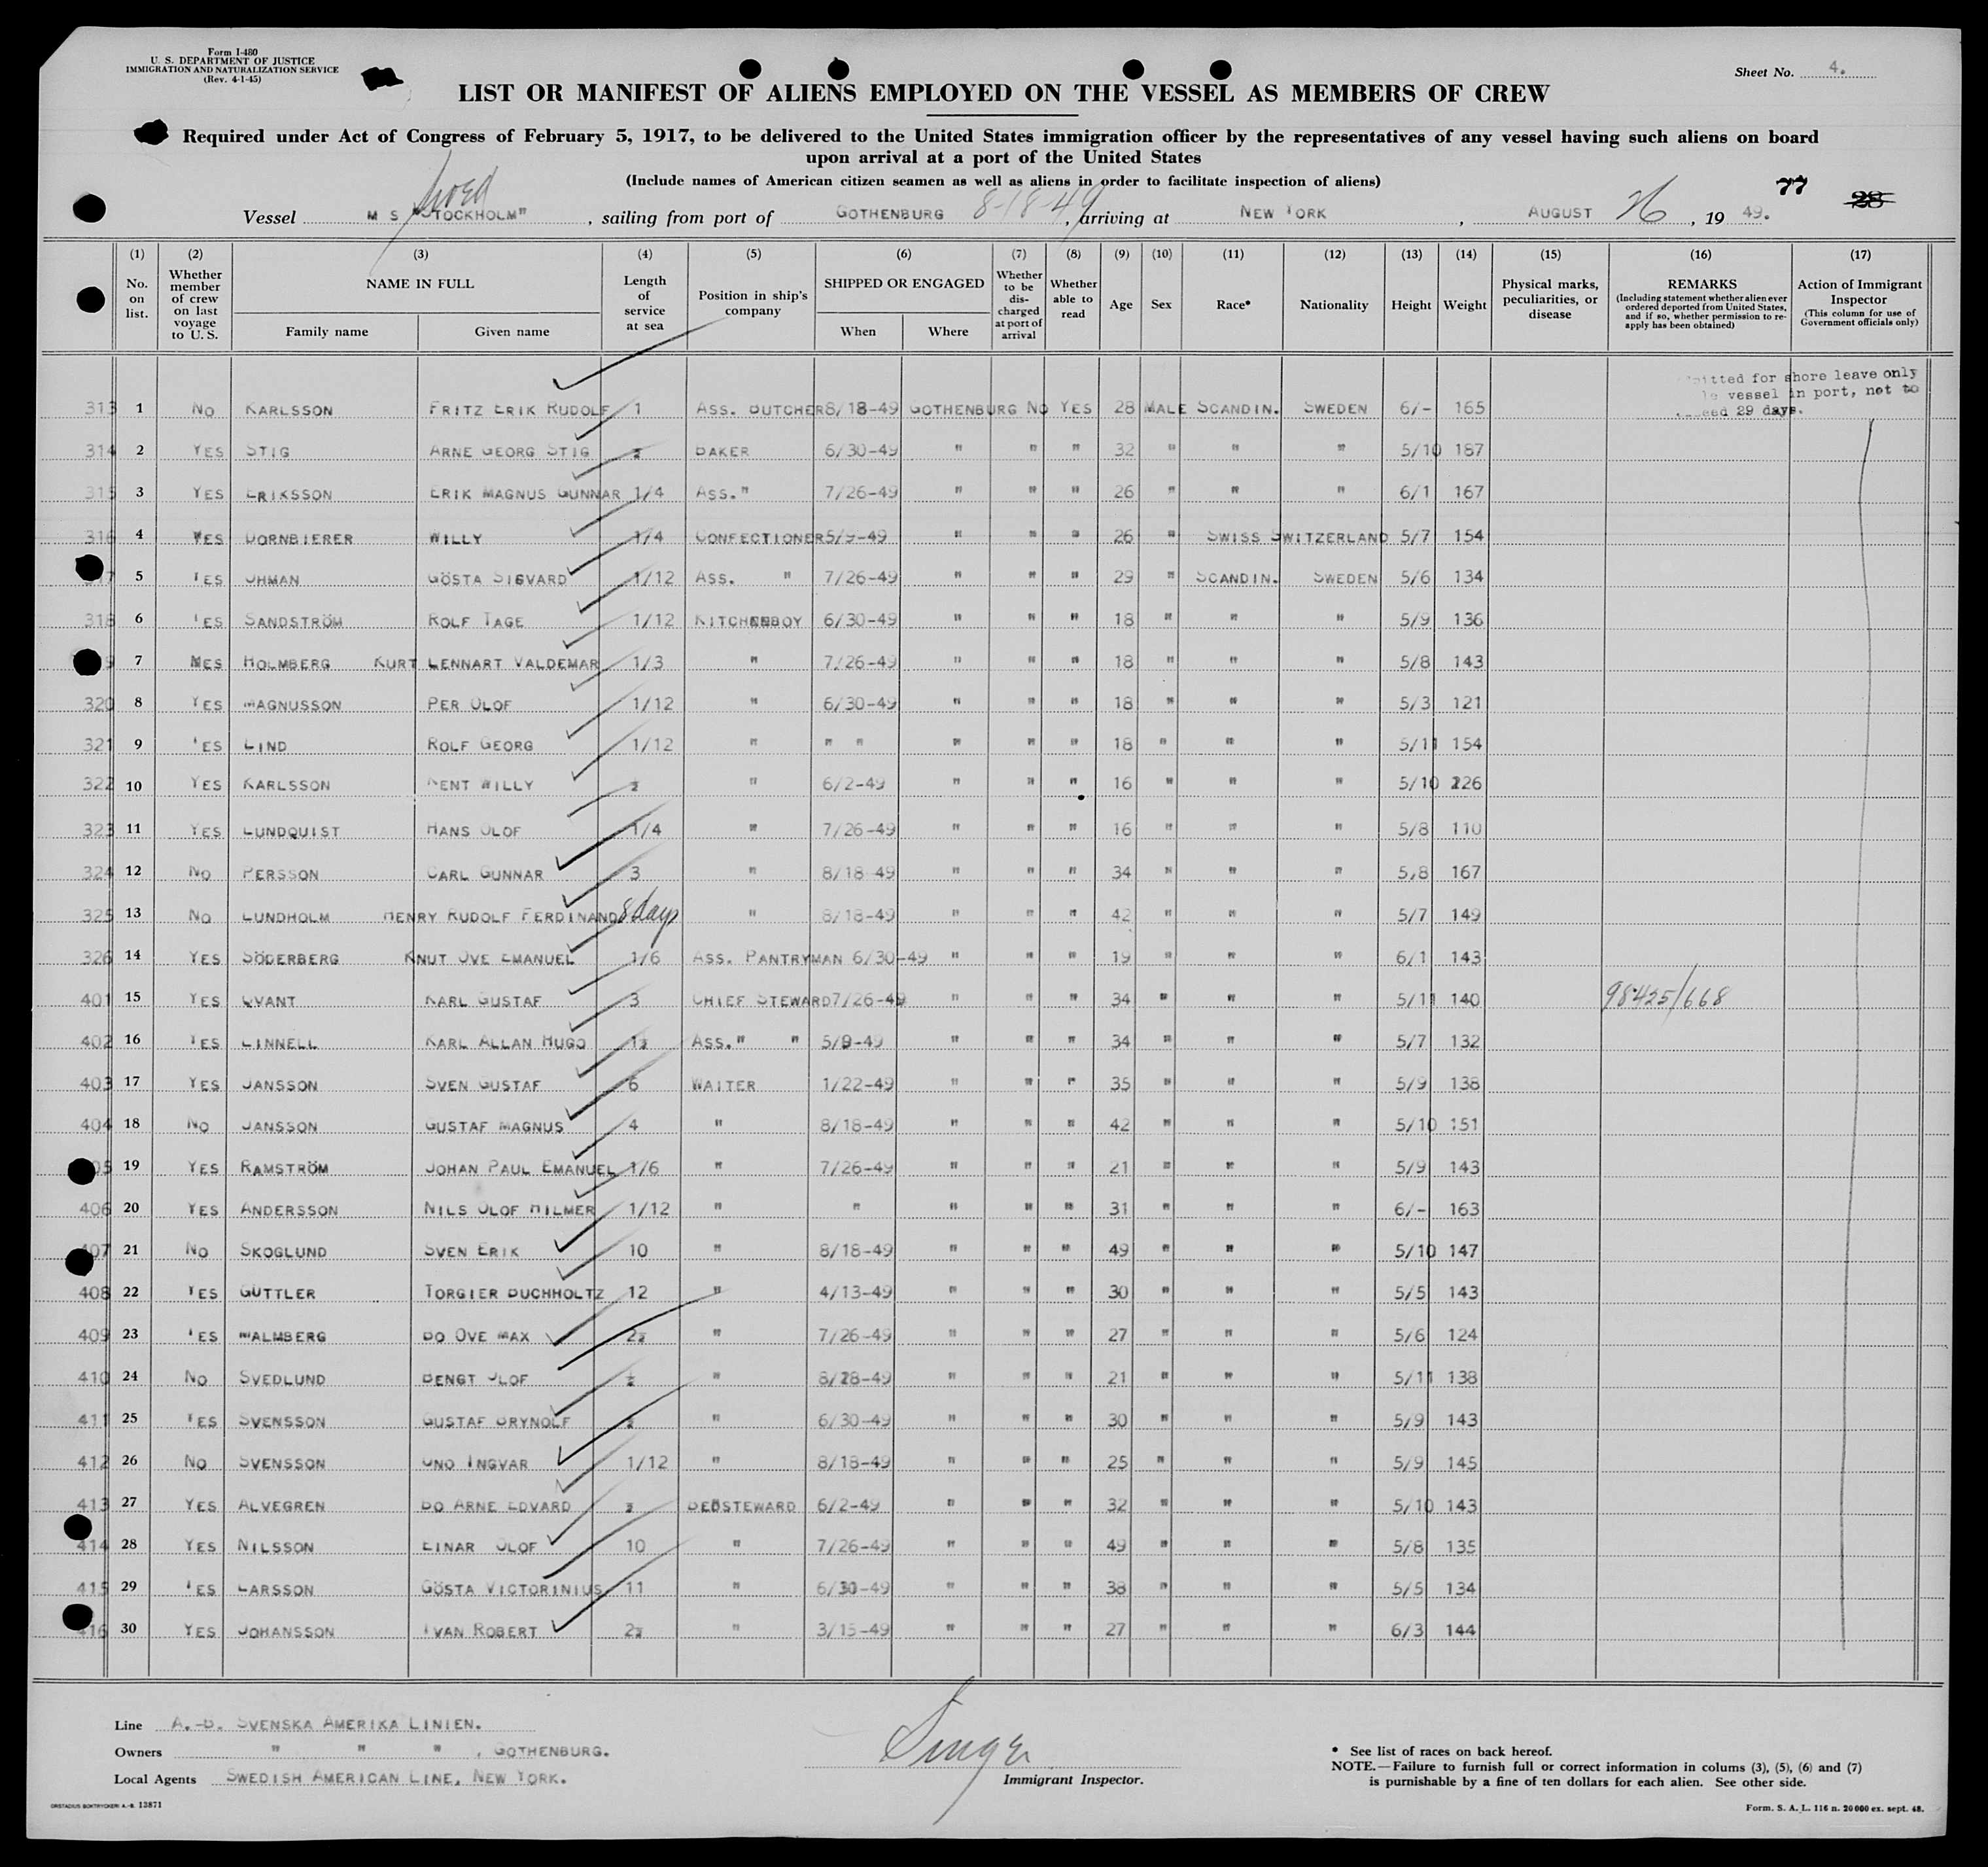 Form I-480
U. S. DEPARTMENT OF JUSTICE
IMMIGRATION AND NATURALIZATION SERVICE
(Rev. 4-1-45)
Sheet No. 4.
LIST OR MANIFEST OF ALIENS EMPLOYED ON THE VESSEL AS MEMBERS OF CREW
Required under Act of Congress of February 5, 1917, to be delivered to the United States immigration officer by the representatives of any vessel having such aliens on board
upon arrival at a port of the United States
(Include names of American citizen seamen as well as aliens in order to facilitate inspection of aliens)
77 28
Vessel M S "STOCKHOLM", sailing from port of GOTHENBURG 8-18-49, arriving at NEW YORK, AUGUST 26, 19 49.
(1) (2) (3) (4) (5) (6) (7) (8) (9) (10) (11) (12) (13) (14) (15) (16) (17)
No. on list. Whether member of crew on last voyage to U. S. NAME IN FULL Family name Given name Length of service at sea Position in ship's company SHIPPED OR ENGAGED When Where Whether to be discharged at port of arrival Whether able to read Age Sex Race* Nationality Height Weight Physical marks, peculiarities, or disease REMARKS (Including statement whether alien ever ordered deported from United States, and if so, whether permission to re-apply has been obtained) Action of Immigrant Inspector (This column for use of Government officials only)
itted for shore leave only
vessel in port, not to
eed 29 days.
313 1 NO KARLSSON FRITZ ERIK RUDOLF 1 ASS. BUTCHER 8/18-49 GOTHENBURG NO YES 28 MALE SCANDIN. SWEDEN 6/- 165
314 2 YES STIG ARNE GEORG STIG ½ BAKER 6/30-49 " " " 32 " " " 5/10 187
315 3 YES ERIKSSON ERIK MAGNUS GUNNAR 1/4 ASS." 7/26-49 " " " 26 " " " 6/1 167
316 4 YES DORNBIERER WILLY 1/4 CONFECTIONER 5/9-49 " " " 26 " SWISS SWITZERLAND 5/7 154
5 YES OHMAN GÖSTA SIGVARD 1/12 ASS. " 7/26-49 " " " 29 " SCANDIN. SWEDEN 5/6 134
318 6 YES SANDSTRÖM ROLF TAGE 1/12 KITCHENBOY 6/30-49 " " " 18 " " " 5/9 136
7 YES HOLMBERG KURT LENNART VALDEMAR 1/3 " 7/26-49 " " " 18 " " " 5/8 143
320 8 YES MAGNUSSON PER OLOF 1/12 " 6/30-49 " " " 18 " " " 5/3 121
321 9 YES LIND ROLF GEORG 1/12 " " " " " " 18 " " " 5/11 154
322 10 YES KARLSSON KENT WILLY ½ " 6/2-49 " " " 16 " " " 5/10 126
323 11 YES LUNDQUIST HANS OLOF 1/4 " 7/26-49 " " " 16 " " " 5/8 110
324 12 NO PERSSON CARL GUNNAR 3 " 8/18-49 " " " 34 " " " 5/8 167
325 13 NO LUNDHOLM HENRY RUDOLF FERDINAND 8 days " 8/18-49 " " " 42 " " " 5/7 149
326 14 YES SÖDERBERG KNUT OVE EMANUEL 1/6 ASS. PANTRYMAN 6/30-49 " " " 19 " " " 6/1 143
401 15 YES QVANT KARL GUSTAF 3 CHIEF STEWARD 7/26-49 " " " 34 " " " 5/11 140 98425/668
402 16 YES LINNELL KARL ALLAN HUGO 1½ ASS." " 5/9-49 " " " 34 " " " 5/7 132
403 17 YES JANSSON SVEN GUSTAF 6 WAITER 1/22-49 " " " 35 " " " 5/9 138
404 18 NO JANSSON GUSTAF MAGNUS 4 " 8/18-49 " " " 42 " " " 5/10 151
19 YES RAMSTRÖM JOHAN PAUL EMANUEL 1/6 " 7/26-49 " " " 21 " " " 5/9 143
406 20 YES ANDERSSON NILS OLOF HILMER 1/12 " " " " " 31 " " " 6/- 163
407 21 NO SKOGLUND SVEN ERIK 10 " 8/18-49 " " " 49 " " " 5/10 147
408 22 YES GUTTLER TORGIER BUCHHOLTZ 12 " 4/13-49 " " " 30 " " " 5/5 143
409 23 YES MALMBERG BO OVE MAX 2½ " 7/26-49 " " " 27 " " " 5/6 124
410 24 NO SVEDLUND BENGT OLOF ½ " 8/18-49 " " " 21 " " " 5/11 138
411 25 YES SVENSSON GUSTAF BRYNOLF ½ " 6/30-49 " " " 30 " " " 5/9 143
412 26 NO SVENSSON UNO INGVAR 1/12 " 8/18-49 " " " 25 " " " 5/9 145
413 27 YES ALVEGREN BO ARNE EDVARD ½ BEDSTEWARD 6/2-49 " " " 32 " " " 5/10 143
414 28 YES NILSSON EINAR OLOF 10 " 7/26-49 " " " 49 " " " 5/8 135
415 29 YES LARSSON GÖSTA VICTORINIUS 11 " 6/30-49 " " " 38 " " " 5/5 134
416 30 YES JOHANSSON IVAN ROBERT 2½ " 3/15-49 " " " 27 " " " 6/3 144
Line A.-B. SVENSKA AMERIKA LINIEN.
Owners " " ", GOTHENBURG.
Local Agents SWEDISH AMERICAN LINE, NEW YORK.
Immigrant Inspector.
* See list of races on back hereof.
NOTE.—Failure to furnish full or correct information in colums (3), (5), (6) and (7)
is punishable by a fine of ten dollars for each alien. See other side.
ORSTADIUS BOKTRYCKERI A.-B. 13871
Form. S. A. L. 116 n. 20 000 ex. sept. 48.